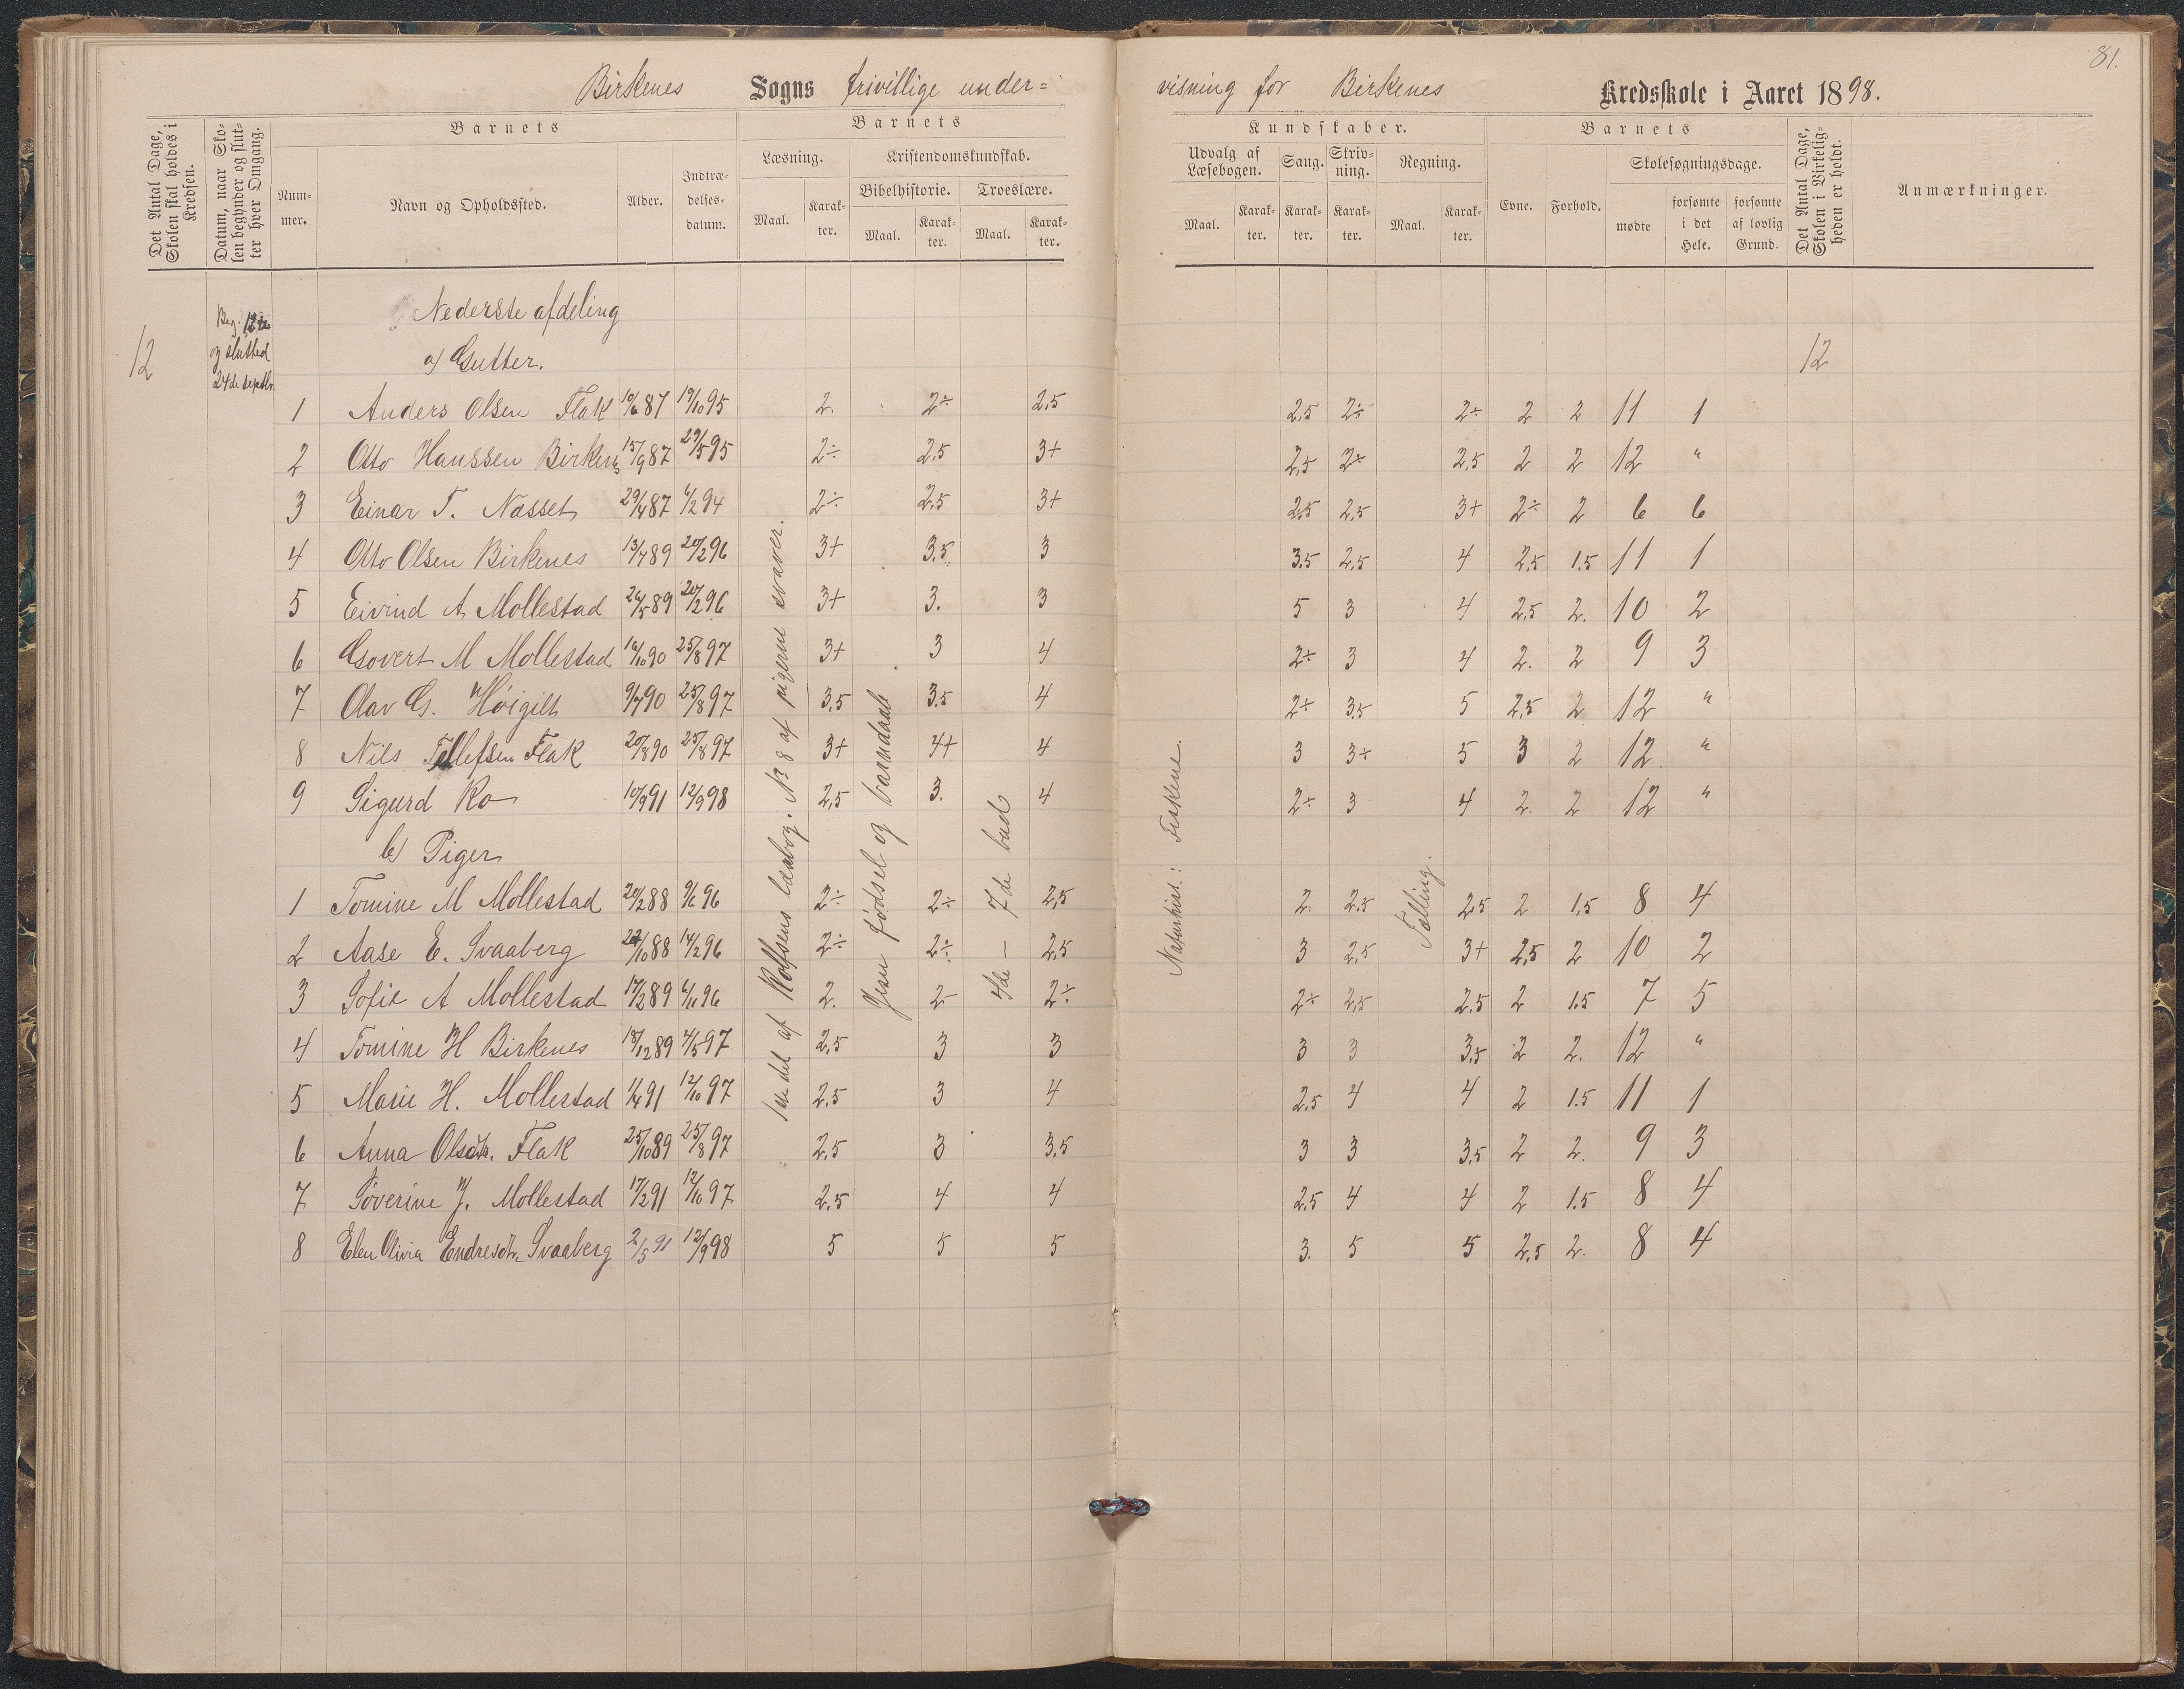 81.
Birkenes Sogns frivillige under= visning for Birkenes Kredsskole i Aaret 1898.
Det Antal Dage, Skolen skal holdes i Kredsen.
Datum, naar Skolen begynder og slutter hver Omgang.
Barnets
Nummer. Navn og Opholdssted. Alder. Indtrædelses-datum.
Barnets Kundskaber.
Læsning. Kristendomskundskab.
Bibelhistorie. Troeslære.
Maal. Karakter. Maal. Karakter. Maal. Karakter.
Udvalg af Læsebogen. Sang. Skrivning. Regning.
Maal. Karakter. Karakter. Karakter. Maal. Karakter.
Barnets
Evne. Forhold. Skolesøgningsdage.
mødte forsømte i det Hele. forsømte af lovlig Grund.
Det Antal Dage, Skolen i Virkeligheden er holdt.
Anmærkninger.
12
Beg. 12te
og slutted
24de septbr.
Nederste afdeling
a) Gutter. 12
1 Anders Olsen Flak 10/6 87 19/10 95 2. 2÷ 2,5 2,5 2÷ 2÷ 2 2 11 1
2 Otto Hanssen Birkenes 15/9 87 29/5 95 2÷ 2,5 3+ 2,5 2÷ 2,5 2 2 12 "
3 Einar T. Næsset 29/4 87 6/2 94 2÷ 2,5 3+ 2,5 2,5 3+ 2÷ 2 6 6
4 Otto Olsen Birkenes 13/7 89 20/2 96 3+ 3,5 3 3,5 2,5 4 2,5 1.5 11 1
5 Eivind A Mollestad 26/5 89 20/2 96 3+ 3. 3 5 3 4 2,5 2. 10 2
6 Govert M Mollestad 16/10 90 25/8 97 3+ 3 4 2÷ 3 4 2. 2 9 3
7 Olav G. Høigilt 9/7 90 25/8 97 3,5 3.5 4 2÷ 3,5 5 2,5 2 12 "
8 Nils Tellefsen Flak 20/8 90 25/8 97 3+ 4+ 4 3 3+ 5 3 2 12. "
9 Sigurd Ro 10/9 91 12/9 98 2,5 3. 4 2÷ 3 4 2. 2 12 "
b) Piger
1 Tomine M Mollestad 20/2 88 9/6 96 2÷ 2÷ 2,5 2. 2.5 2,5 2 1,5 8 4
2 Aase E. Svaaberg 22/10 88 14/2 96 2÷ 2÷ 2,5 3 2,5 3+ 2,5 2 10 2
3 Sofie A Mollestad 17/2 89 6/11 96 2. 2- 2÷ 2÷ 2,5 2,5 2 1.5 7 5
4 Tomine H Birkenes 18/12 89 4/5 97 2,5 3 3 3 3 3,5 2 2. 12 "
5 Marie H. Mollestad 1/4 91 12/10 97 2,5 3 4 2,5 4 4 2 1.5 11 1
6 Anna Olsdtr. Flak 25/10 89 25/8 97 2,5 3 3,5 3 3 3,5 2 2. 9 3
7 Söverine J. Mollestad 17/2 91 12/10 97 2,5 4 4 2,5 4 4 2 1.5 8 4
8 Elen Olivia Endresdtr. Svaaberg 2/5 91 12/9 98 5 5 5 3. 5 5 2,5 2. 8 4
1ste del af Rolfsens læsebog. No 8 af pigerne svaver.
Jesu fødsel og barndaab
7de bud
4de —
Naturhist.: Fiskene.
Tælling.